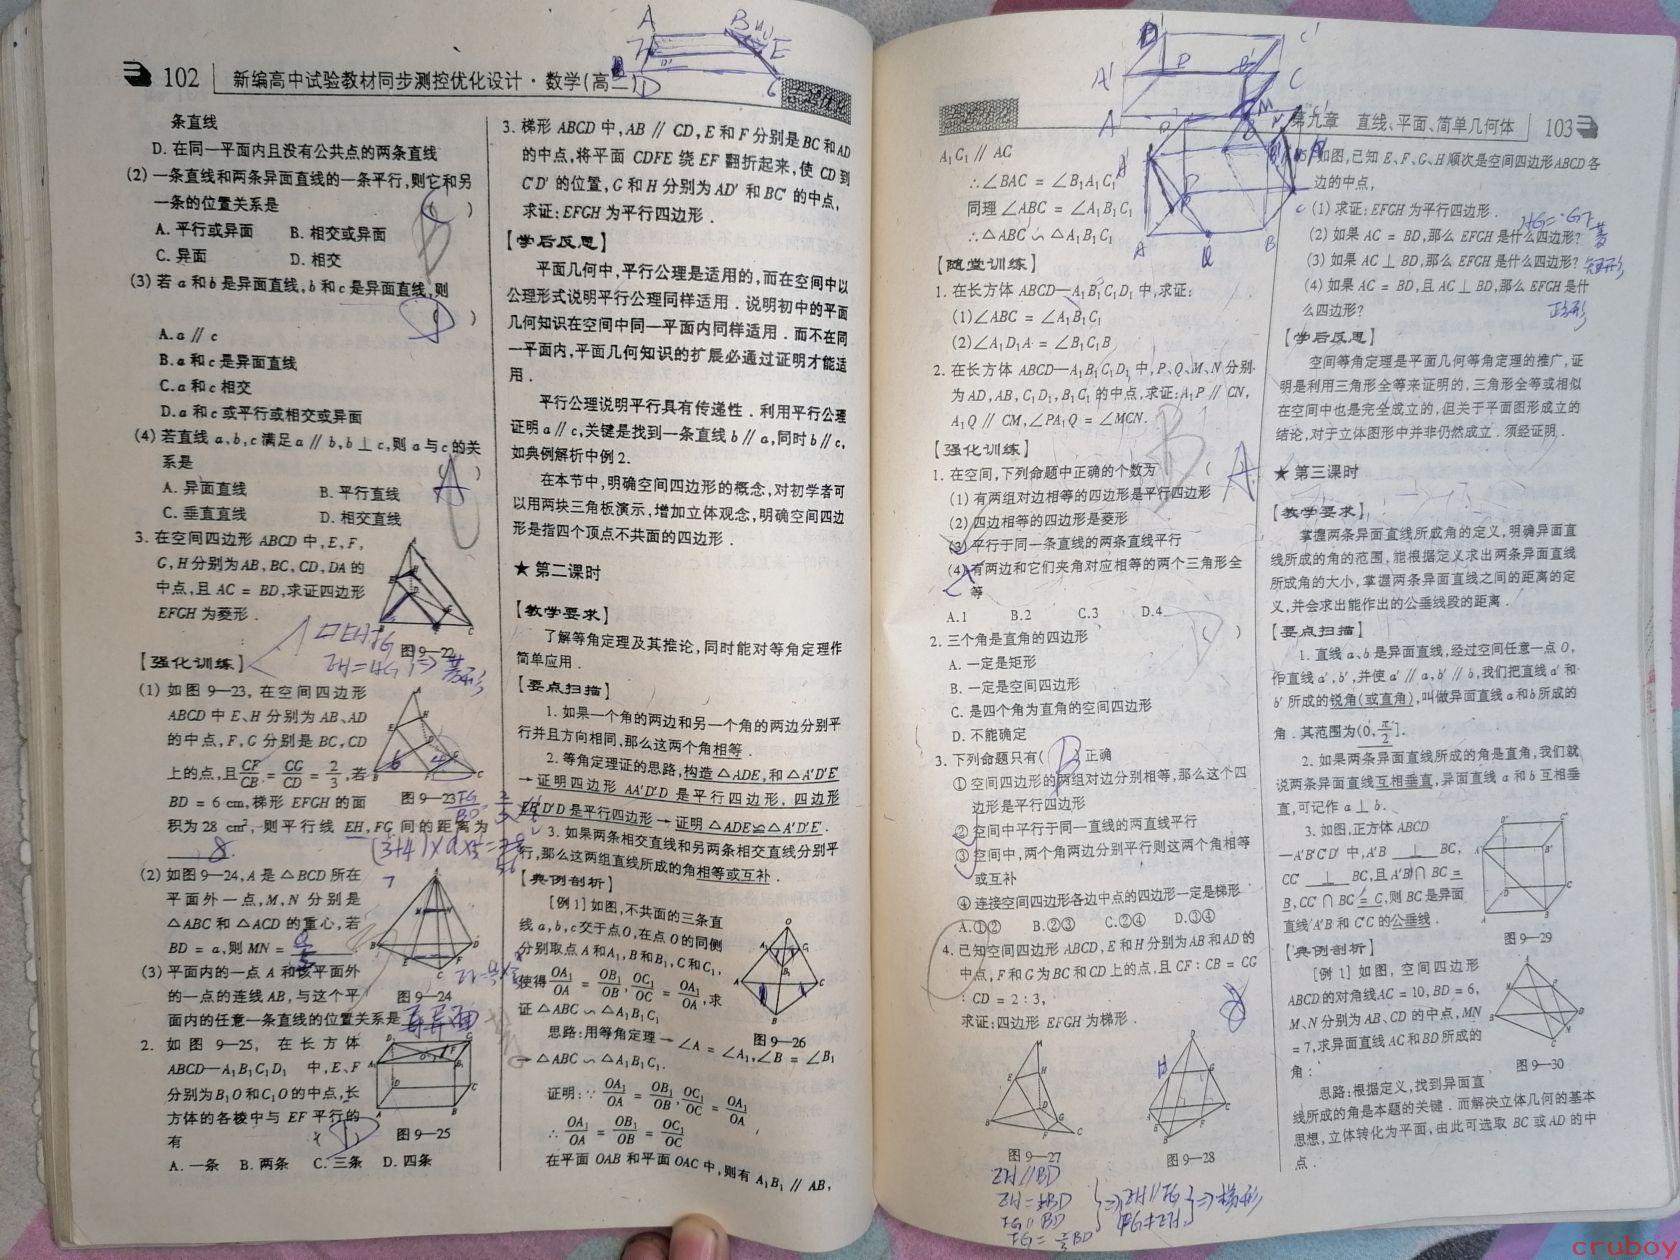 102 新编高中试验教材同步测控优化设计·数学(高二)
条直线
D. 在同一平面内且没有公共点的两条直线
(2) 一条直线和两条异面直线的一条平行,则它和另
一条的位置关系是 ( )
A. 平行或异面 B. 相交或异面
C. 异面 D. 相交
(3) 若 a 和 b 是异面直线, b 和 c 是异面直线,则
( )
A. a ∥ c
B. a 和 c 是异面直线
C. a 和 c 相交
D. a 和 c 或平行或相交或异面
(4) 若直线 a,b,c 满足 a ∥ b,b ⊥ c,则 a 与 c 的关
系是 ( )
A. 异面直线 B. 平行直线
C. 垂直直线 D. 相交直线
3. 在空间四边形 ABCD 中,E,F,
G,H 分别为 AB、BC、CD、DA 的
中点,且 AC = BD,求证四边形
EFGH 为菱形.
图 9—22
【强化训练】
(1) 如图 9—23, 在空间四边形
ABCD 中 E、H 分别为 AB、AD
的中点,F、G 分别是 BC、CD
上的点,且 CF/CB = CG/CD = 2/3,若
BD = 6 cm,梯形 EFGH 的面
积为 28 cm², 则平行线 EH,FG 间的距离为
8.
图 9—23
(2) 如图 9—24,A 是 △BCD 所在
平面外一点,M、N 分别是
△ABC 和 △ACD 的重心,若
BD = a,则 MN =
(3) 平面内的一点 A 和该平面外
的一点的连线 AB,与这个平
面内的任意一条直线的位置关系是
图 9—24
2. 如图 9—25, 在长方体
ABCD—A₁B₁C₁D₁ 中,E、F
分别为 B₁O 和 C₁O 的中点,长
方体的各棱中与 EF 平行的
有
图 9—25
A. 一条 B. 两条 C. 三条 D. 四条
3. 梯形 ABCD 中,AB ∥ CD,E 和 F 分别是 BC 和 AD
的中点,将平面 CDFE 绕 EF 翻折起来,使 CD 到
C'D' 的位置,G 和 H 分别为 AD' 和 BC' 的中点,
求证:EFGH 为平行四边形.
【学后反思】
平面几何中,平行公理是适用的,而在空间中以
公理形式说明平行公理同样适用.说明初中的平面
几何知识在空间中同一平面内同样适用.而不在同
一平面内,平面几何知识的扩展必通过证明才能适
用.
平行公理说明平行具有传递性.利用平行公理
证明 a ∥ c,关键是找到一条直线 b ∥ a,同时 b ∥ c,
如典例解析中例 2.
在本节中,明确空间四边形的概念,对初学者可
以用两块三角板演示,增加立体观念,明确空间四边
形是指四个顶点不共面的四边形.
★ 第二课时
【教学要求】
了解等角定理及其推论,同时能对等角定理作
简单应用.
【要点扫描】
1. 如果一个角的两边和另一个角的两边分别平
行并且方向相同,那么这两个角相等.
2. 等角定理证的思路,构造 △ADE,和 △A'D'E'
→ 证明四边形 AA'D'D 是平行四边形,四边形
EE'D'D 是平行四边形 → 证明 △ADE≌△A'D'E'.
3. 如果两条相交直线和另两条相交直线分别平
行,那么这两组直线所成的角相等或互补.
【典例剖析】
[例 1] 如图,不共面的三条直
线 a,b,c 交于点 O,在点 O 的同侧
分别取点 A 和 A₁,B 和 B₁,C 和 C₁,
使得 OA₁/OA = OB₁/OB, OC₁/OC = OA₁/OA, 求
证 △ABC ∽ △A₁B₁C₁
图 9—26
思路:用等角定理 → ∠A = ∠A₁,∠B = ∠B₁
→ △ABC ∽ △A₁B₁C₁.
证明:∵ OA₁/OA = OB₁/OB, OC₁/OC = OA₁/OA
∴ OA₁/OA = OB₁/OB = OC₁/OC
在平面 OAB 和平面 OAC 中,则有 A₁B₁ ∥ AB,
第九章 直线、平面、简单几何体 103
A₁C₁ ∥ AC
∴∠BAC = ∠B₁A₁C₁
同理 ∠ABC = ∠A₁B₁C₁
∴△ABC ∽ △A₁B₁C₁
【随堂训练】
1. 在长方体 ABCD—A₁B₁C₁D₁ 中,求证:
(1)∠ABC = ∠A₁B₁C₁
(2)∠A₁D₁A = ∠B₁C₁B
2. 在长方体 ABCD—A₁B₁C₁D₁ 中,P、Q、M、N 分别
为 AD,AB,C₁D₁,B₁C₁ 的中点,求证:A₁P ∥ CN,
A₁Q ∥ CM,∠PA₁Q = ∠MCN.
【强化训练】
1. 在空间,下列命题中正确的个数为 (
(1) 有两组对边相等的四边形是平行四边形
(2) 四边相等的四边形是菱形
(3) 平行于同一条直线的两条直线平行
(4) 有两边和它们夹角对应相等的两个三角形全
等
A.1 B.2 C.3 D.4
2. 三个角是直角的四边形 ( )
A. 一定是矩形
B. 一定是空间四边形
C. 是四个角为直角的空间四边形
D. 不能确定
3. 下列命题只有( )正确
① 空间四边形的两组对边分别相等,那么这个四
边形是平行四边形
② 空间中平行于同一直线的两直线平行
③ 空间中,两个角两边分别平行则这两个角相等
或互补
④ 连接空间四边形各边中点的四边形一定是梯形
A.①② B.②③ C.②④ D.③④
4. 已知空间四边形 ABCD,E 和 H 分别为 AB 和 AD 的
中点,F 和 G 为 BC 和 CD 上的点,且 CF : CB = CG
: CD = 2 : 3,
求证:四边形 EFGH 为梯形.
图 9—27 图 9—28
EH∥BD
EH=½BD
FG∥BD
FG=⅔BD
⇒EH∥FG
FG≠EH
⇒梯形
5. 如图,已知 E、F、G、H 顺次是空间四边形 ABCD 各
边的中点,
(1) 求证:EFGH 为平行四边形.
(2) 如果 AC = BD,那么 EFGH 是什么四边形?
(3) 如果 AC ⊥ BD,那么 EFGH 是什么四边形? 矩形
(4) 如果 AC = BD,且 AC ⊥ BD,那么 EFGH 是什
么四边形?
【学后反思】
空间等角定理是平面几何等角定理的推广,证
明是利用三角形全等来证明的,三角形全等或相似
在空间中也是完全成立的,但关于平面图形成立的
结论,对于立体图形中并非仍然成立.须经证明.
★ 第三课时
【教学要求】
掌握两条异面直线所成角的定义,明确异面直
线所成的角的范围,能根据定义求出两条异面直线
所成角的大小,掌握两条异面直线之间的距离的定
义,并会求出能作出的公垂线段的距离.
【要点扫描】
1. 直线 a、b 是异面直线,经过空间任意一点 O,
作直线 a',b',并使 a' ∥ a,b' ∥ b,我们把直线 a' 和
b' 所成的锐角(或直角),叫做异面直线 a 和 b 所成的
角.其范围为(0, π/2].
2. 如果两条异面直线所成的角是直角,我们就
说两条异面直线互相垂直,异面直线 a 和 b 互相垂
直,可记作 a ⊥ b.
3. 如图,正方体 ABCD
—A'B'C'D' 中,A'B ⊥ BC,
CC' ⊥ BC,且 A'B ∩ BC =
B,CC' ∩ BC = C,则 BC 是异面
直线 A'B 和 C'C 的公垂线.
图 9—29
【典例剖析】
[例 1] 如图, 空间四边形
ABCD 的对角线 AC = 10,BD = 6,
M、N 分别为 AB、CD 的中点,MN
= 7,求异面直线 AC 和 BD 所成的
角:
图 9—30
思路:根据定义,找到异面直
线所成的角是本题的关键.而解决立体几何的基本
思想,立体转化为平面,由此可选取 BC 或 AD 的中
点.
cruboy